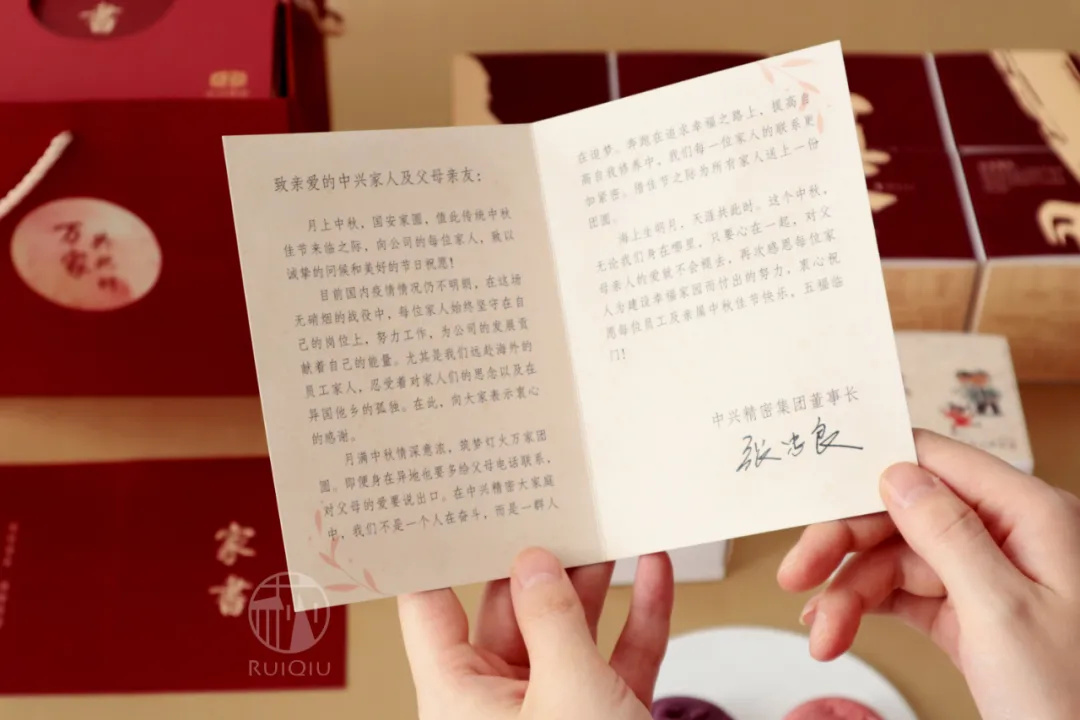 致亲爱的中兴家人及父母亲友：
月上中秋，国安家圆，值此传统中秋
佳节来临之际，向公司的每位家人，致以
诚挚的问候和美好的节日祝愿！
目前国内疫情情况仍不明朗，在这场
无硝烟的战役中，每位家人始终坚守在自
己的岗位上，努力工作，为公司的发展贡
献着自己的能量。尤其是我们远赴海外的
员工家人，忍受着对家人们的思念以及在
异国他乡的孤独。在此，向大家表示衷心
的感谢。
月满中秋情深意浓，筑梦灯火万家团
圆。即便身在异地也要多给父母电话联系，
对父母的爱要说出口。在中兴精密大家庭
中，我们不是一个人在奋斗，而是一群人
在逐梦。奔跑在追求幸福之路上，提高自
高自我修养中，我们每一位家人的联系更
加紧密。借佳节之际为所有家人送上一份
团圆。
海上生明月，天涯共此时。这个中秋，
无论我们身在哪里，只要心在一起，对父
母亲人的爱就不会褪去，再次感恩每位家
人为建设幸福家园而付出的努力，衷心祝
愿每位员工及亲属中秋佳节快乐，五福临
门！
中兴精密集团董事长
张忠良
书
万家
共此时
家书
RUIQIU